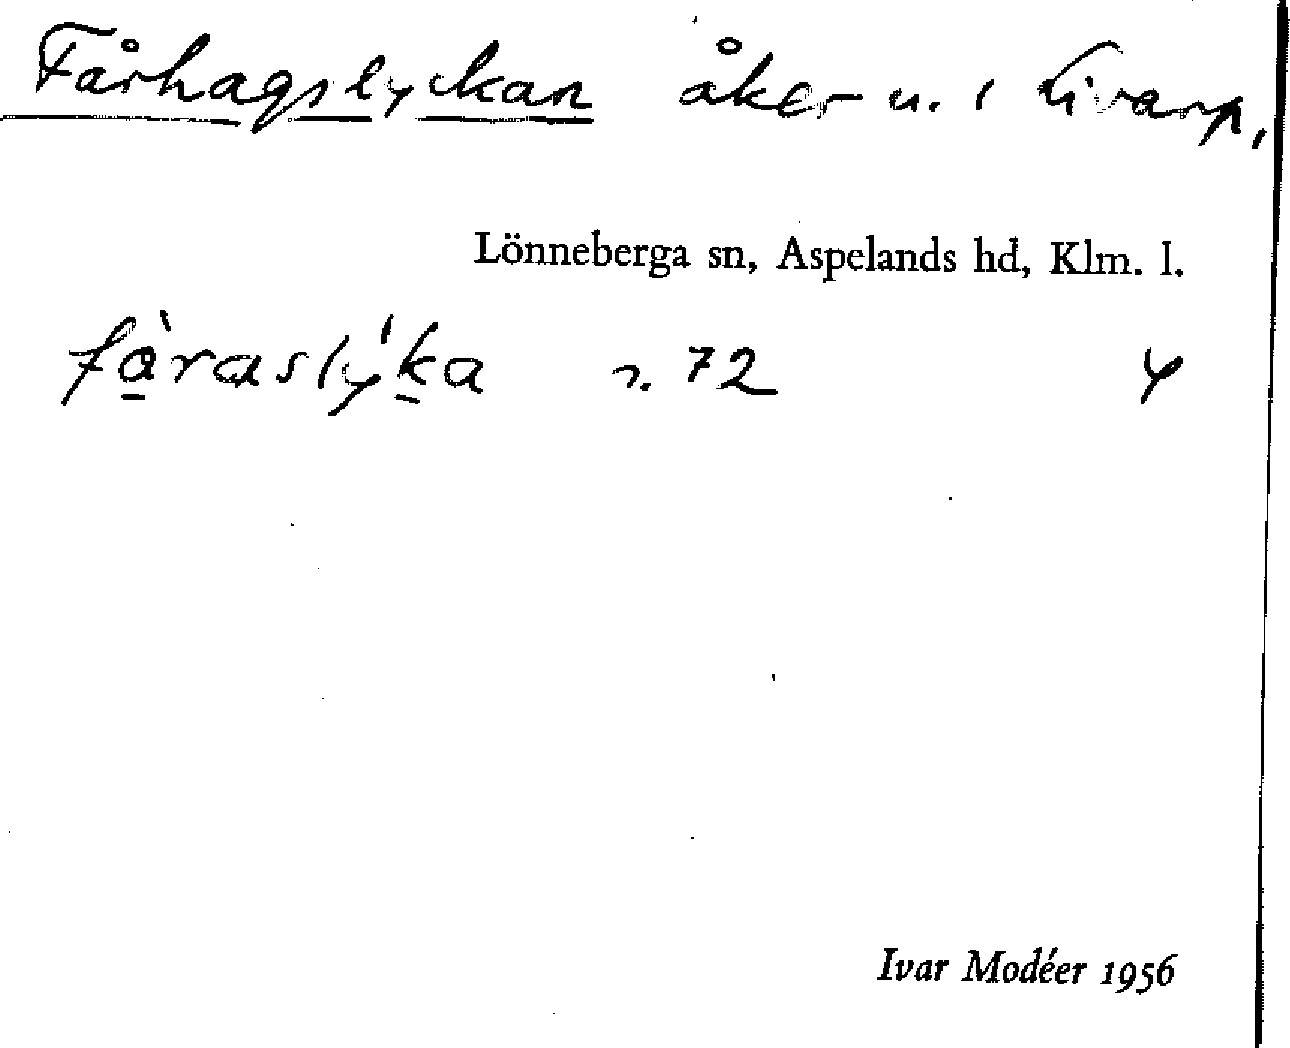 Fårhagslyckan åker u. i Livarp,
Lönneberga sn, Aspelands hd, Klm. l.
fàraslý́ka n. 72 4
Ivar Modéer 1956